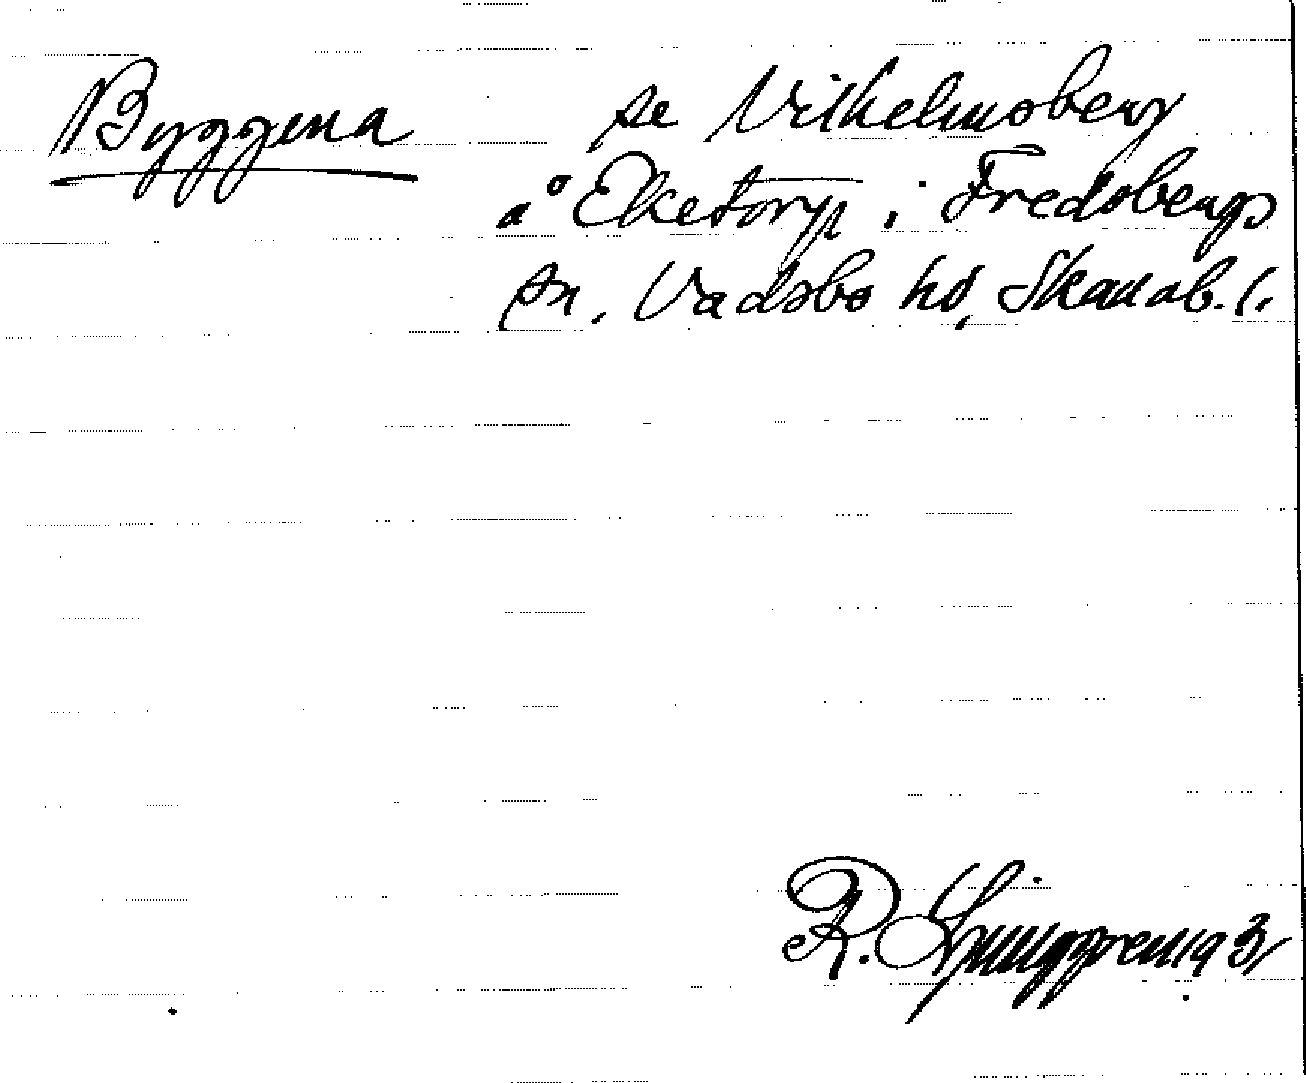 Byggena se Vilhelmsberg
å Eketorp i Fredsbergs
sn, Vadsbo hd, Skarab. l.
R. Ljunggren 193